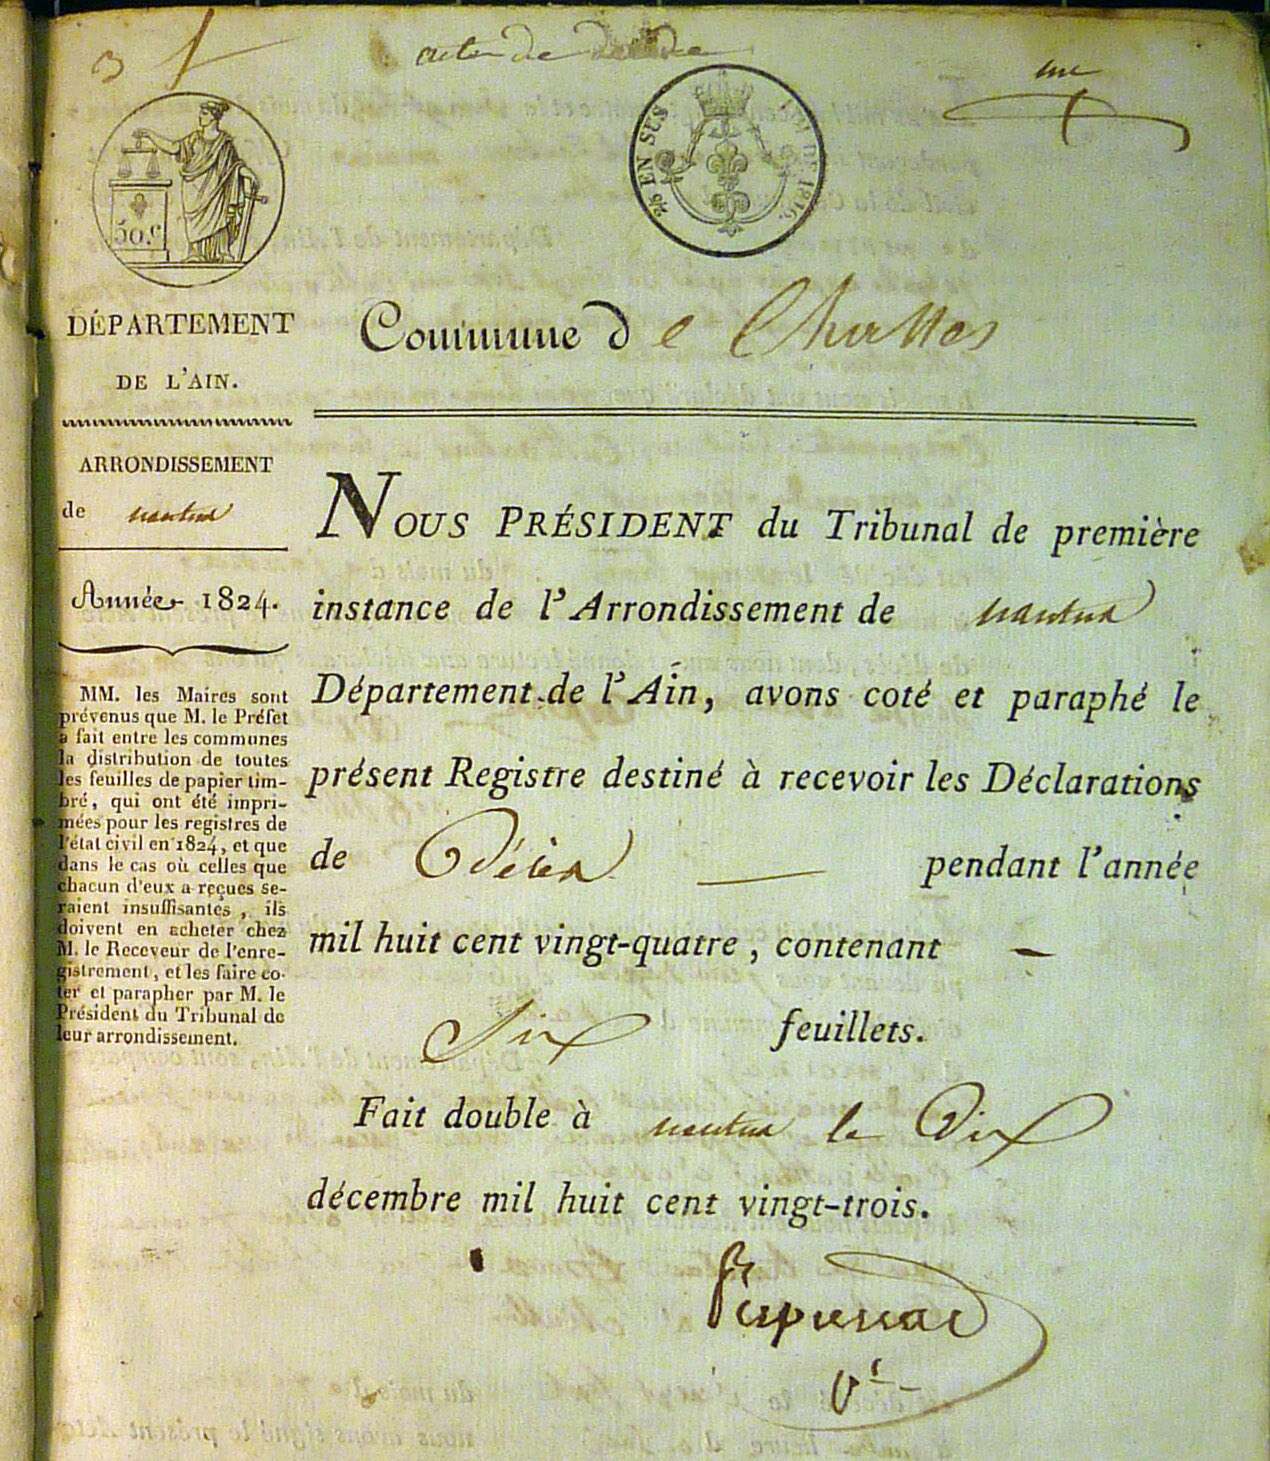 3
acte de
une
¼ EN SUS
DE 1816.
50.c
DÉPARTEMENT
DE L'AIN.
ARRONDISSEMENT
de nantua
Année 1824.
MM. les Maires sont
prévenus que M. le Préfet
a fait entre les communes
la distribution de toutes
les feuilles de papier tim-
bré, qui ont été impri-
mées pour les registres de
l'état civil en 1824, et que
dans le cas où celles que
chacun d'eux a reçues se-
raient insuffisantes, ils
doivent en acheter chez
M. le Receveur de l'enre-
gistrement, et les faire co-
ter et parapher par M. le
Président du Tribunal de
leur arrondissement.
Commune de
NOUS PRÉSIDENT du Tribunal de première
instance de l'Arrondissement de nantua
Département de l'Ain, avons coté et paraphé le
présent Registre destiné à recevoir les Déclarations
de Décès pendant l'année
mil huit cent vingt-quatre, contenant
Six feuillets.
Fait double à nantua le Dix
décembre mil huit cent vingt-trois.